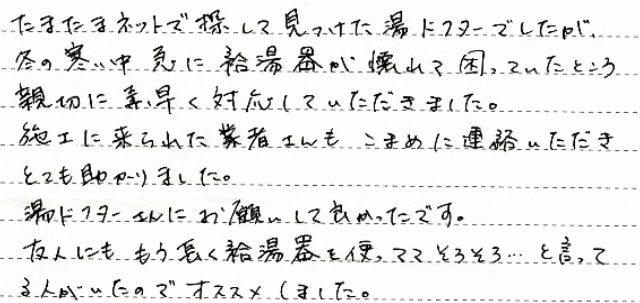 たまたまネットで探して見つけた湯ドクターでしたが、
冬の寒い中急に給湯器が壊れて困っていたところ
親切に素早く対応していただきました。
施工に来られた業者さんも こまめに連絡いただき
とても助かりました。
湯ドクターさんにお願いして良かったです。
友人にも もう長く給湯器を使ってて そろそろ…と言って
る人がいたので オススメしました。